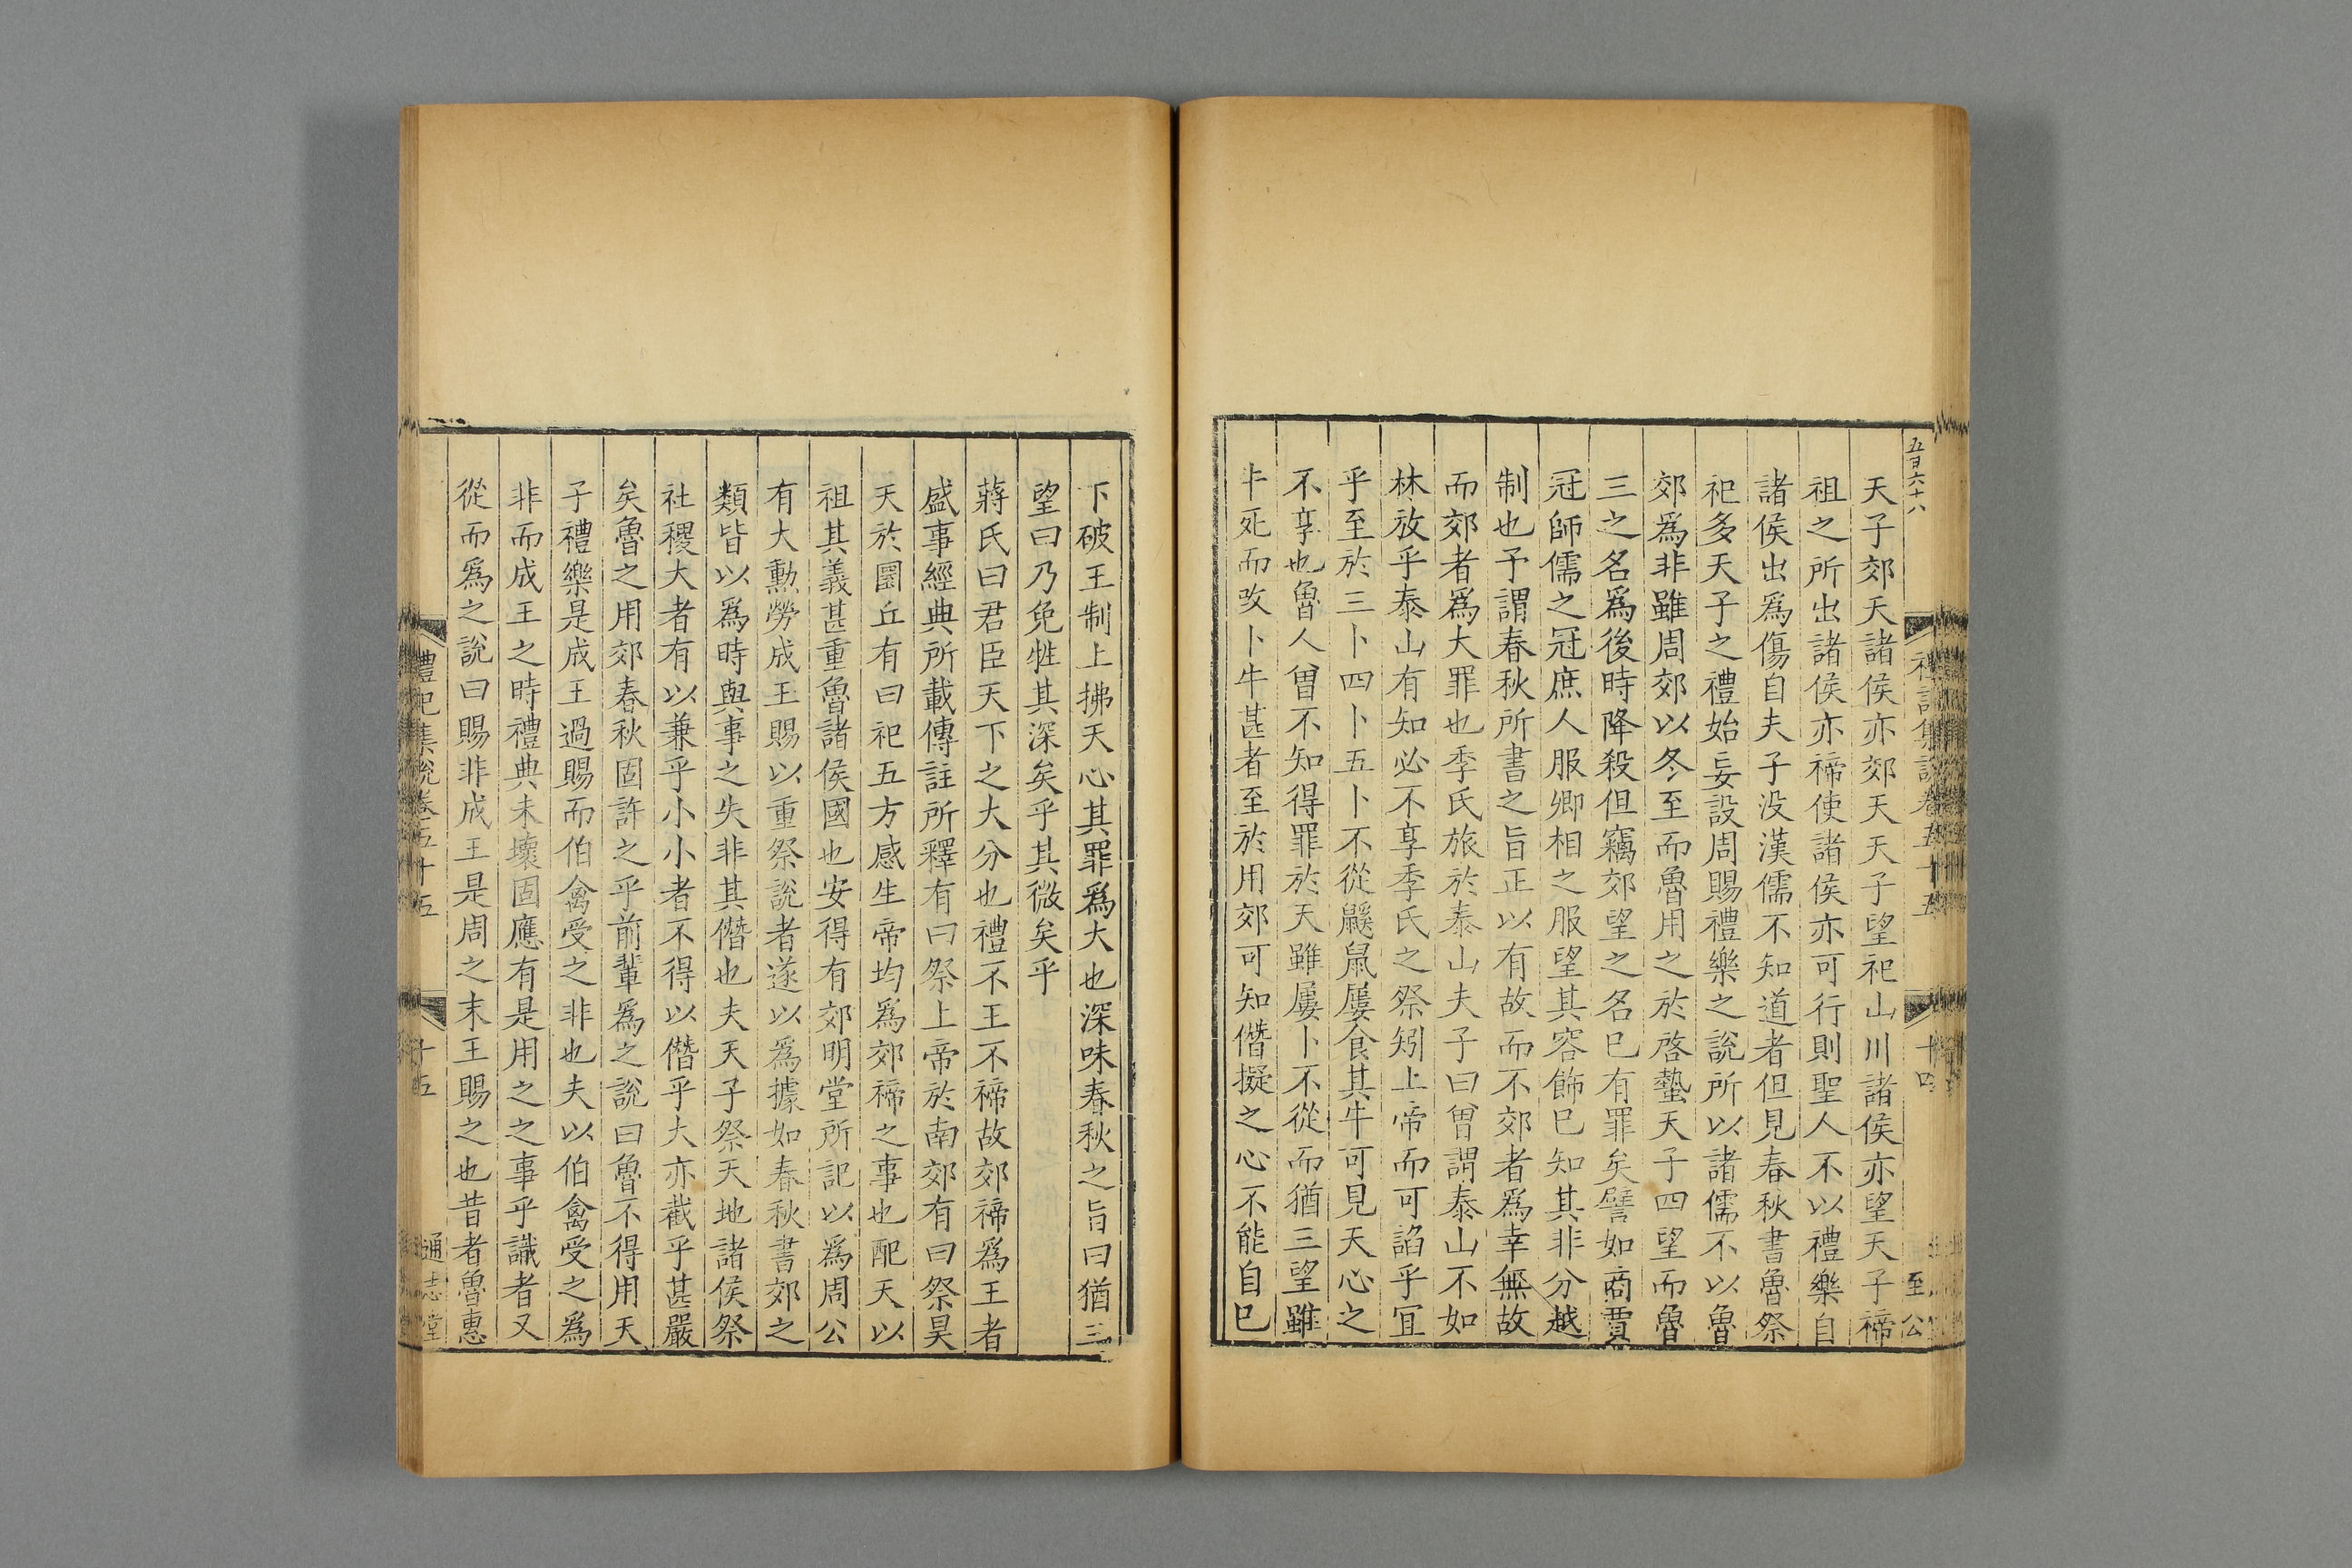 五百六十八
禮記集說卷五十五
十四
至公
天子郊天諸侯亦郊天天子望祀山川諸侯亦望天子禘
祖之所出諸侯亦禘使諸侯亦可行則聖人不以禮樂自
諸侯出爲傷自夫子没漢儒不知道者但見春秋書魯祭
祀多天子之禮始妄設周賜禮樂之說所以諸儒不以魯
郊爲非雖周郊以冬至而魯用之於啓蟄天子四望而魯
三之名爲後時降殺但竊郊望之名巳有罪矣譬如商賈
冠師儒之冠庶人服卿相之服望其容飾巳知其非分越
制也予謂春秋所書之旨正以有故而不郊者爲幸無故
而郊者爲大罪也季氏旅於泰山夫子曰曾謂泰山不如
林放乎泰山有知必不享季氏之祭矧上帝而可諂乎宜
乎至於三卜四卜五卜不從鼷鼠屢食其牛可見天心之
不享也魯人曾不知得罪於天雖屢卜不從而猶三望雖
牛死而改卜牛甚者至於用郊可知僭擬之心不能自巳
下破王制上拂天心其罪爲大也深味春秋之旨曰猶三
望曰乃免牲其深矣乎其微矣乎
蔣氏曰君臣天下之大分也禮不王不禘故郊禘爲王者
盛事經典所載傳註所釋有曰祭上帝於南郊有曰祭昊
天於圜丘有曰祀五方感生帝均爲郊禘之事也配天以
祖其義甚重魯諸侯國也安得有郊明堂所記以爲周公
有大勳勞成王賜以重祭說者遂以爲據如春秋書郊之
類皆以爲時與事之失非其僭也夫天子祭天地諸侯祭
社稷大者有以兼乎小小者不得以僭乎大亦截乎甚嚴
矣魯之用郊春秋固許之乎前輩爲之說曰魯不得用天
子禮樂是成王過賜而伯禽受之非也夫以伯禽受之爲
非而成王之時禮典未壞固應有是用之之事乎識者又
從而爲之說曰賜非成王是周之末王賜之也昔者魯惠
禮記集說卷五十五
十五
通志堂